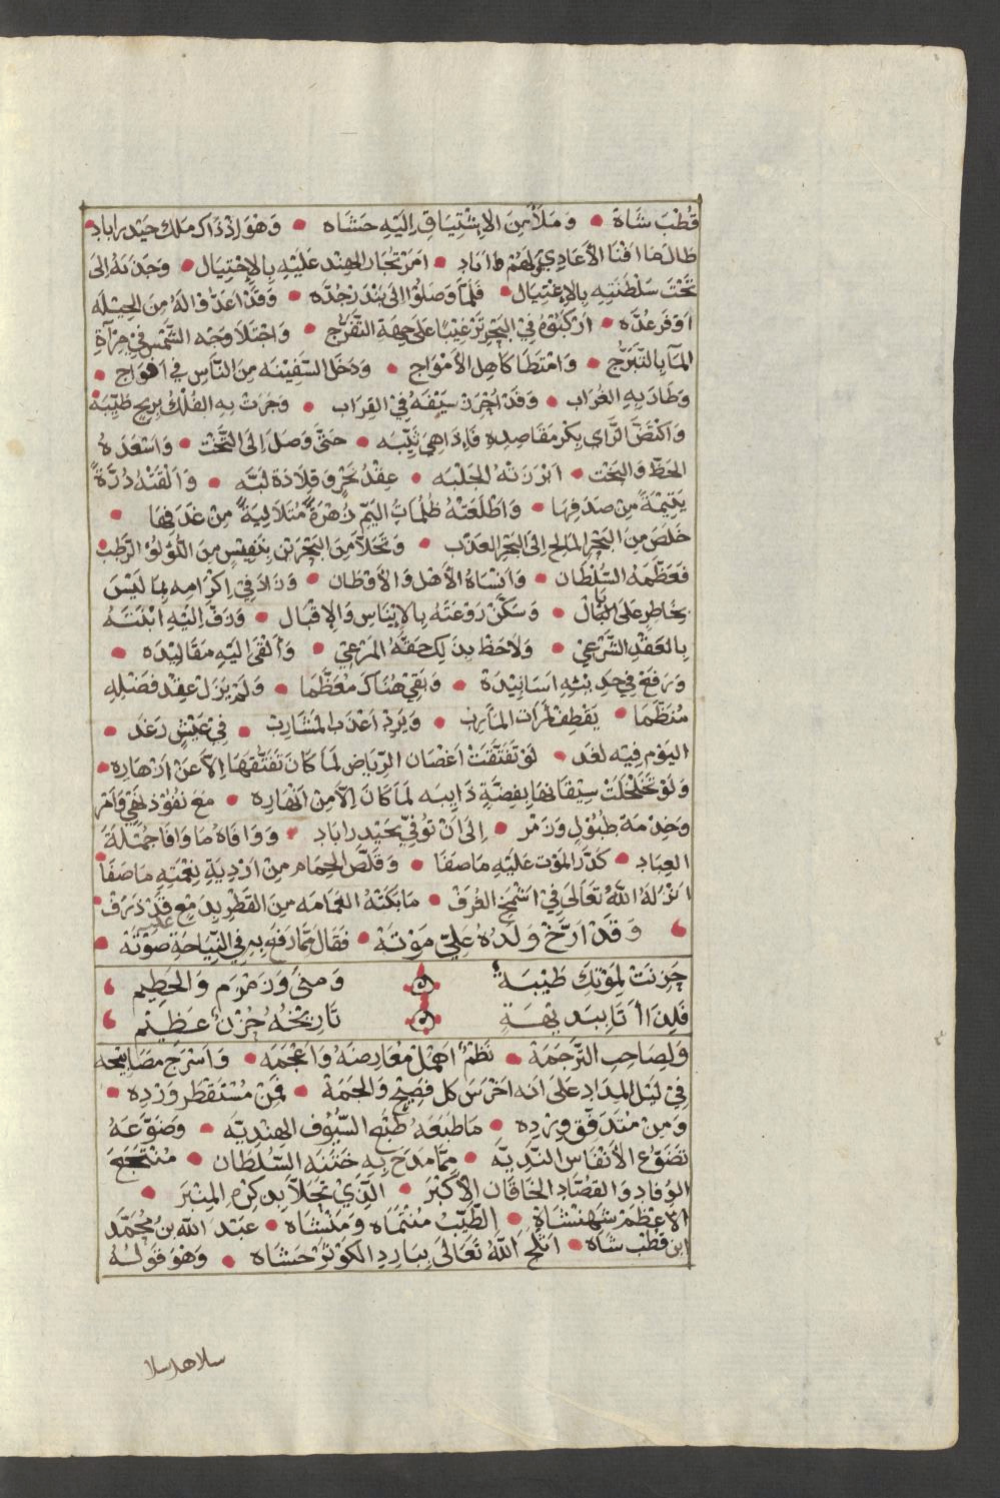 قُطْبَ شَاهْ • وَمَلَأَ مِنَ الِاشْتِيَاقِ إِلَيْهِ حَشَاه • وَهُوَ إِذْ ذَاكَ مَلِك حَيْدَراباد •
طَالمَا افْنَا الأَعَادِي وَلَهُمْ اباد • امَرَ تُجّار الهِند عَلَيْهِ بِالاِحْتِيَال • وَجَذبَهُ إِلى
تَخْتَ سَلْطَنَتِهِ بِالاِغْتِيَال • فَلمَّا وَصَلُوا الى بَنْدَر جُدَّه • وَقَدْ اعَدُّوا لَهُ مِنَ الحِيْلَه
اوفرَ عُدَّه • ارْكَبُوهُ فِي البَحْرِ تَرْغِيْبًا عَلَى جِهَةِ التَّفَرُّجْ • وَاجْتَلَا وَجْه الشَّمْسِ فِي مِرْآةِ
المَآ بِالتَّبَرُّجْ • وَامْتَطَا كَاهِل الأَمْوَاج • وَدَخَلَ السَّفِيْنَه مِنَ النَّاسِ في افْوَاج •
وَطَارَ بِهِ الغُرَاب • وَقَدْ اجْرَدْ سَيْفَهُ فِي القِرَاب • وَجَرَتْ بِهِ الفُلْكُ بِرِيحٍ طَيّبَة •
وَاكْتَضَّ الرَّاي بِكْر مَقَاصِدِهِ فَاِذَا هِيَ ثَيِّبَه • حَتَّى وَصَلَ إِلَى التَّخْت • وَاسْعَدَهُ
الحَظّ وَالبَخْت • ابْرَزَتْهُ الجَلْبَه • عِقْدُ نَحْرٍ وَقِلَادَة لبَّه • وَالْقَتْهُ دُرَّةً
يَتِيْمَةً مِنْ صَدَفِهَا • وَاطْلَعَتْهُ ظُلُمَاتُ اليَمّ زُهْرَةً مُتَلَالِيَةً مِنْ غَدَفِهَا •
خَلَصَ مِنَ البَحْرِ المَالِح إِلَى البَحْرِ العَذْب • وَتَحَلَّا مِنَ البَحْرَيْن بِنَفِيْسٍ مِنَ اللُّؤلُؤ الرَّطْب •
فَعَظَّمَهُ السُّلْطَان • وَانْسَاهُ الأَهْل وَالأَوْطَان • وَزَادَ فِي اِكْرَامِهِ بِمَا لَيْسَ
بِخَاطِرٍ عَلَى بَال • وَسَكَّنَ رَوْعَتَهُ بِالإِيْنَاسِ وَالإِقْبَال • وَزَفَّ اِلَيْهِ ابْنَتَهُ
بِالعَقْدِ الشَّرْعِي • وَلَاحَظَ بِذَلِكَ حَقَّهُ المَرْعِي • وَألْقَى اليَهِ مَقَالِيْدَه •
وَرَفَعَ فِي حَدِيْثِهِ اسَانِيْدَهْ • وَبَقِيَ هُنَاكَ مُعَظَّمَا • وَلَمْ يَزَلْ عِقْد فَضْلِهِ
مُنَظَّمَا • يَقْطِفُ ثَمَرَات المَآرِب • وَيَرِدُ اعْذَب المَشَارِب • فِي عَيْشٍ رَغَد •
اليَوْم فِيْهِ لغَد • لَوْ تَفَتَّقَتْ اغْصَان الرِّيَاض لمَا كَانَ تَفَتُّقهَا اِلّا عَنْ ازْهَارِه •
وَلَوْ تَخَلْخَلَتْ سِيْقَانهَا بِفِضَّةٍ ذَايِبَه لَمَا كَانَ اِلّا مِنْ انْهَارِه • مَعَ نفُوْذ نَهْيٍ وَامْرٍ
وَخِدْمَة طبُوْلٍ وَزَمْر • اِلَى انْ تُوُفِّيَ بحَيْدَراباد • وَوَافَاهُ مَا وَافَا جُمْلَةَ
العِبَاد • كَدَّرَ المَوْت عَلَيْهِ مَاصَفَا • وَقَلَّصَ الحِمَام مِنْ ارْدِيَةِ نِعْمَتِهِ مَا ضَفَا •
انْزَلَهُ اللهُ تَعَالَى فِي اشْمَخِ الغُرَفْ • مَا بَكَتْهُ الغَمَامَه مِنَ القَطْرِ بِدَمْعٍ قَدْ ذَرَفْ •
وَقَدْ ارَّخَ وَلَدُهُ عَلِيّ مَوْتَهْ • فَقَالَ مِمَّا رَفَع بِهِ فِي النِّيَاحَةِ صَوْتَهْ •
حَزِنَتْ لِمَوْتِكَ طَيْبَةٌ وَمِنَى وَزَمْزَم وَالحَطِيْم
فَلِذَا أَتَا بِبَدِيْهَةٍ تَارِيْخُهُ حُزْنٌ عَظِيْم
وَلِصَاحِبِ التَّرْجَمَةْ • نَظْمٌ اهْمَلَ مُعَارِضَهُ وَاعْجَمَه • وَاسْرَجَ مَصَابِيْحَه
فِي لَيْلِ المِدَادِ عَلَى انَّه اخْرَسَ كل فَصِيْحٍ وَالجَمَهْ • فَمِنْ مُسْتَقْطَر وَرْدِه •
وَمِنْ مُتَدَفّقِ وِرْدِه • مَا طَبَعَهُ طَبْعَ السُّيُوف الهِنْدِيَّه • وَضَوَّعَهُ
تَضَوُّع الأَنْفَاسِ النَّدِيَّه • مِمَّا مَدَحَ بِهِ خَتَنَه السُّلْطَان • مُنْتَجَعَ
الوُفّاد وَالقُصَّاد الخَاقَان الأَكْبَرْ • الَّذِيْ تَحَلَّا بِذِكْرِهِ المِنْبَر •
الأَعْظَمْ شَهِنْشَاهْ • الطَّيّبُ مُنْتَمَاه وَمَنْشَاه • عَبْد الله بنُ مُحَمَّد
ابن قُطْب شَاه • اثْلَجَ اللهُ تَعَالَى بِبَارِدِ الكَوْثَرِ حَشَاه • وَهُوَ قَوْلُهُ